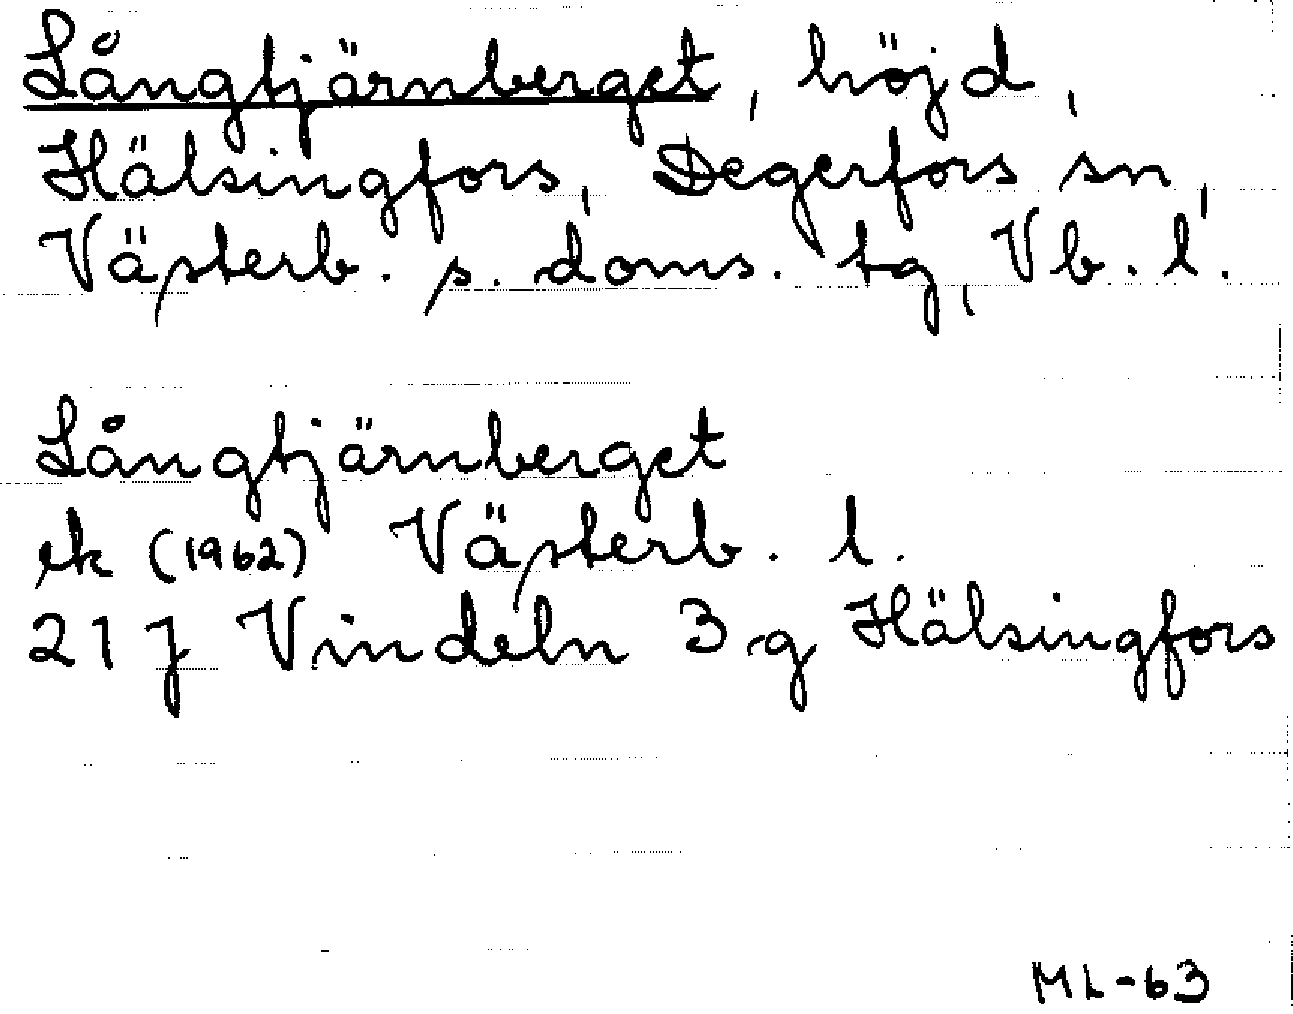 Långtjärnberget, höjd,
Hälsingfors, Degerfors sn,
Västerb. s. doms. tg, Vb. l.
Långtjärnberget
ek (1962) Västerb. l.
21 J Vindeln 3 g Hälsingfors
ML-63